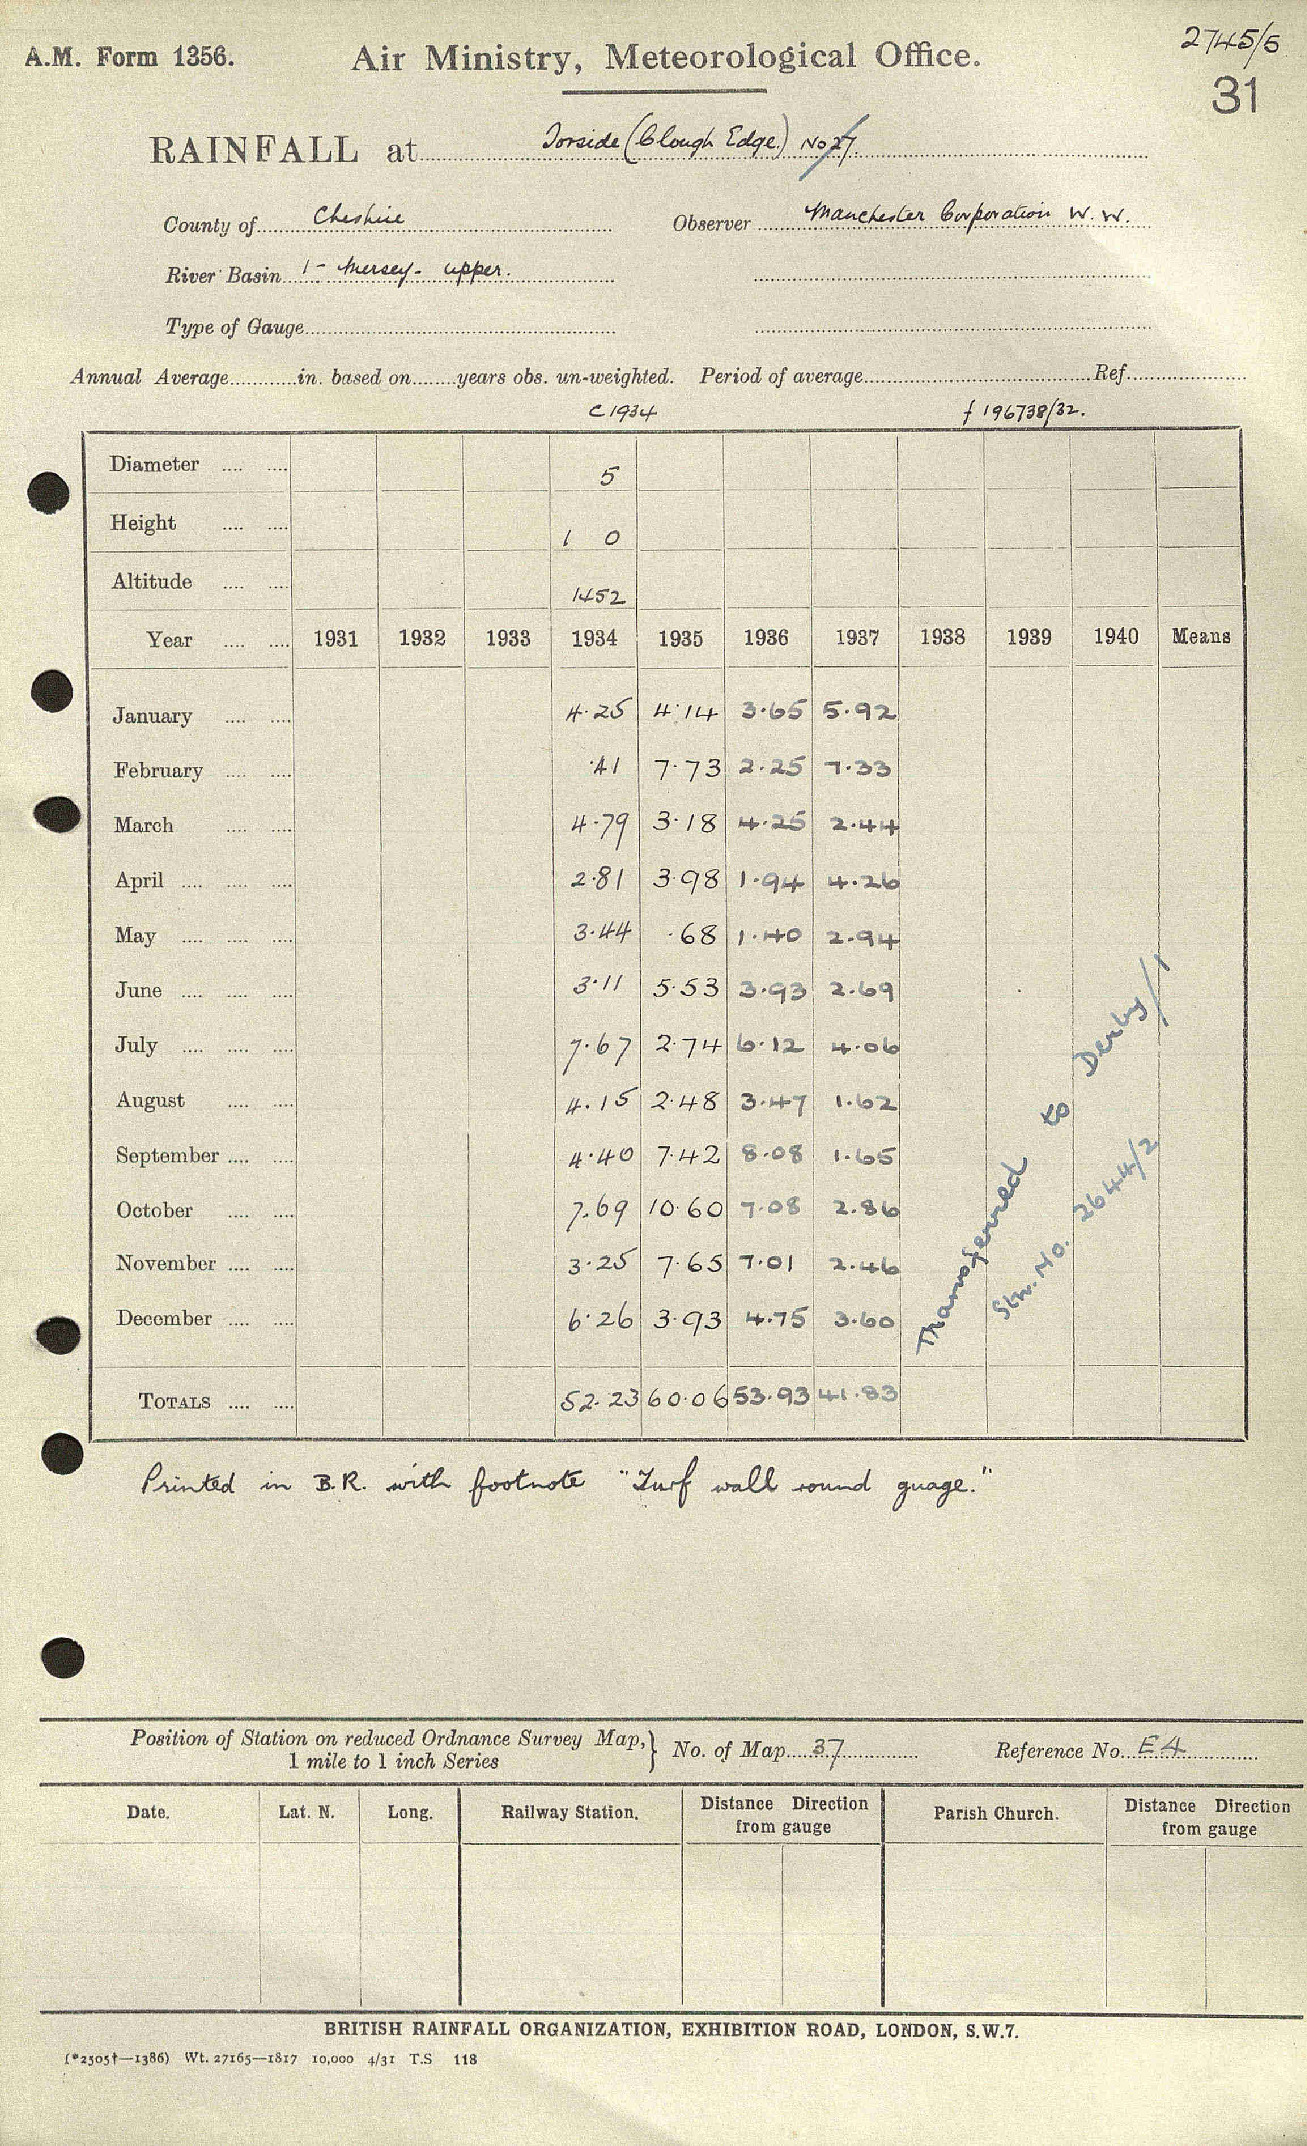 2745/5
A.M. Form 1356. Air Ministry, Meteorological Office.
31
RAINFALL at Torside (Clough Edge.) No 27.
County of Cheshire Observer Manchester Corporation W.W.
River Basin 1 - Mersey - upper.
Type of Gauge
Annual Average in. based on years obs. un-weighted. Period of average Ref.
C 1934 f 196738/32.
Diameter 5
Height 1 0
Altitude 1452
Year 1931 1932 1933 1934 1935 1936 1937 1938 1939 1940 Means
January 4.25 4.14 3.65 5.92
February .41 7.73 2.25 7.33
March 4.79 3.18 4.25 2.44
April 2.81 3.98 1.94 4.26
May 3.44 .68 1.40 2.94
June 3.11 5.53 3.93 2.69
July 7.67 2.74 6.12 4.06
August 4.15 2.48 3.47 1.62
September 4.40 7.42 8.08 1.65
October 7.69 10.60 7.08 2.86
November 3.25 7.65 7.01 2.46
December 6.26 3.93 4.75 3.60
Transferred to Derby/1
Stn. No. 2644/2
TOTALS 52.23 60.06 53.93 41.83
Printed in B.R. with footnote "Turf wall round guage."
Position of Station on reduced Ordnance Survey Map, } No. of Map 37 Reference No. E4
1 mile to 1 inch Series
Date. Lat. N. Long. Railway Station. Distance Direction from gauge Parish Church. Distance Direction from gauge
BRITISH RAINFALL ORGANIZATION, EXHIBITION ROAD, LONDON, S.W.7.
(*2505†—1386) Wt. 27165—1817 10,000 4/31 T.S 118